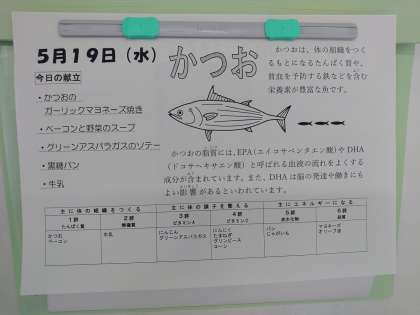 5月19日（水）
今日の献立
・かつおの
ガーリックマヨネーズ焼き
・ベーコンと野菜のスープ
・グリーンアスパラガスのソテー
・黒糖パン
・牛乳
かつお
かつおは、体の組織をつく
るもとになるたんぱく質や、
貧血を予防する鉄などを含む
栄養素が豊富な魚です。
かつおの脂質には、EPA(エイコサペンタエン酸）やDHA
（ドコサヘキサエン酸）と呼ばれる血液の流れをよくする
成分が含まれています。また、DHAは脳の発達や働きにも
よい影響があるといわれています。
主に体の組織をつくる 主に体の調子を整える 主にエネルギーになる
1群 2群 3群 4群 5群 6群
たんぱく質 無機質 ビタミンA ビタミンC 炭水化物 脂質
かつお 牛乳 にんじん にんにく パン マヨネーズ
ベーコン グリーンアスパラガス たまねぎ じゃがいも オリーブ油
グリンピース
コーン